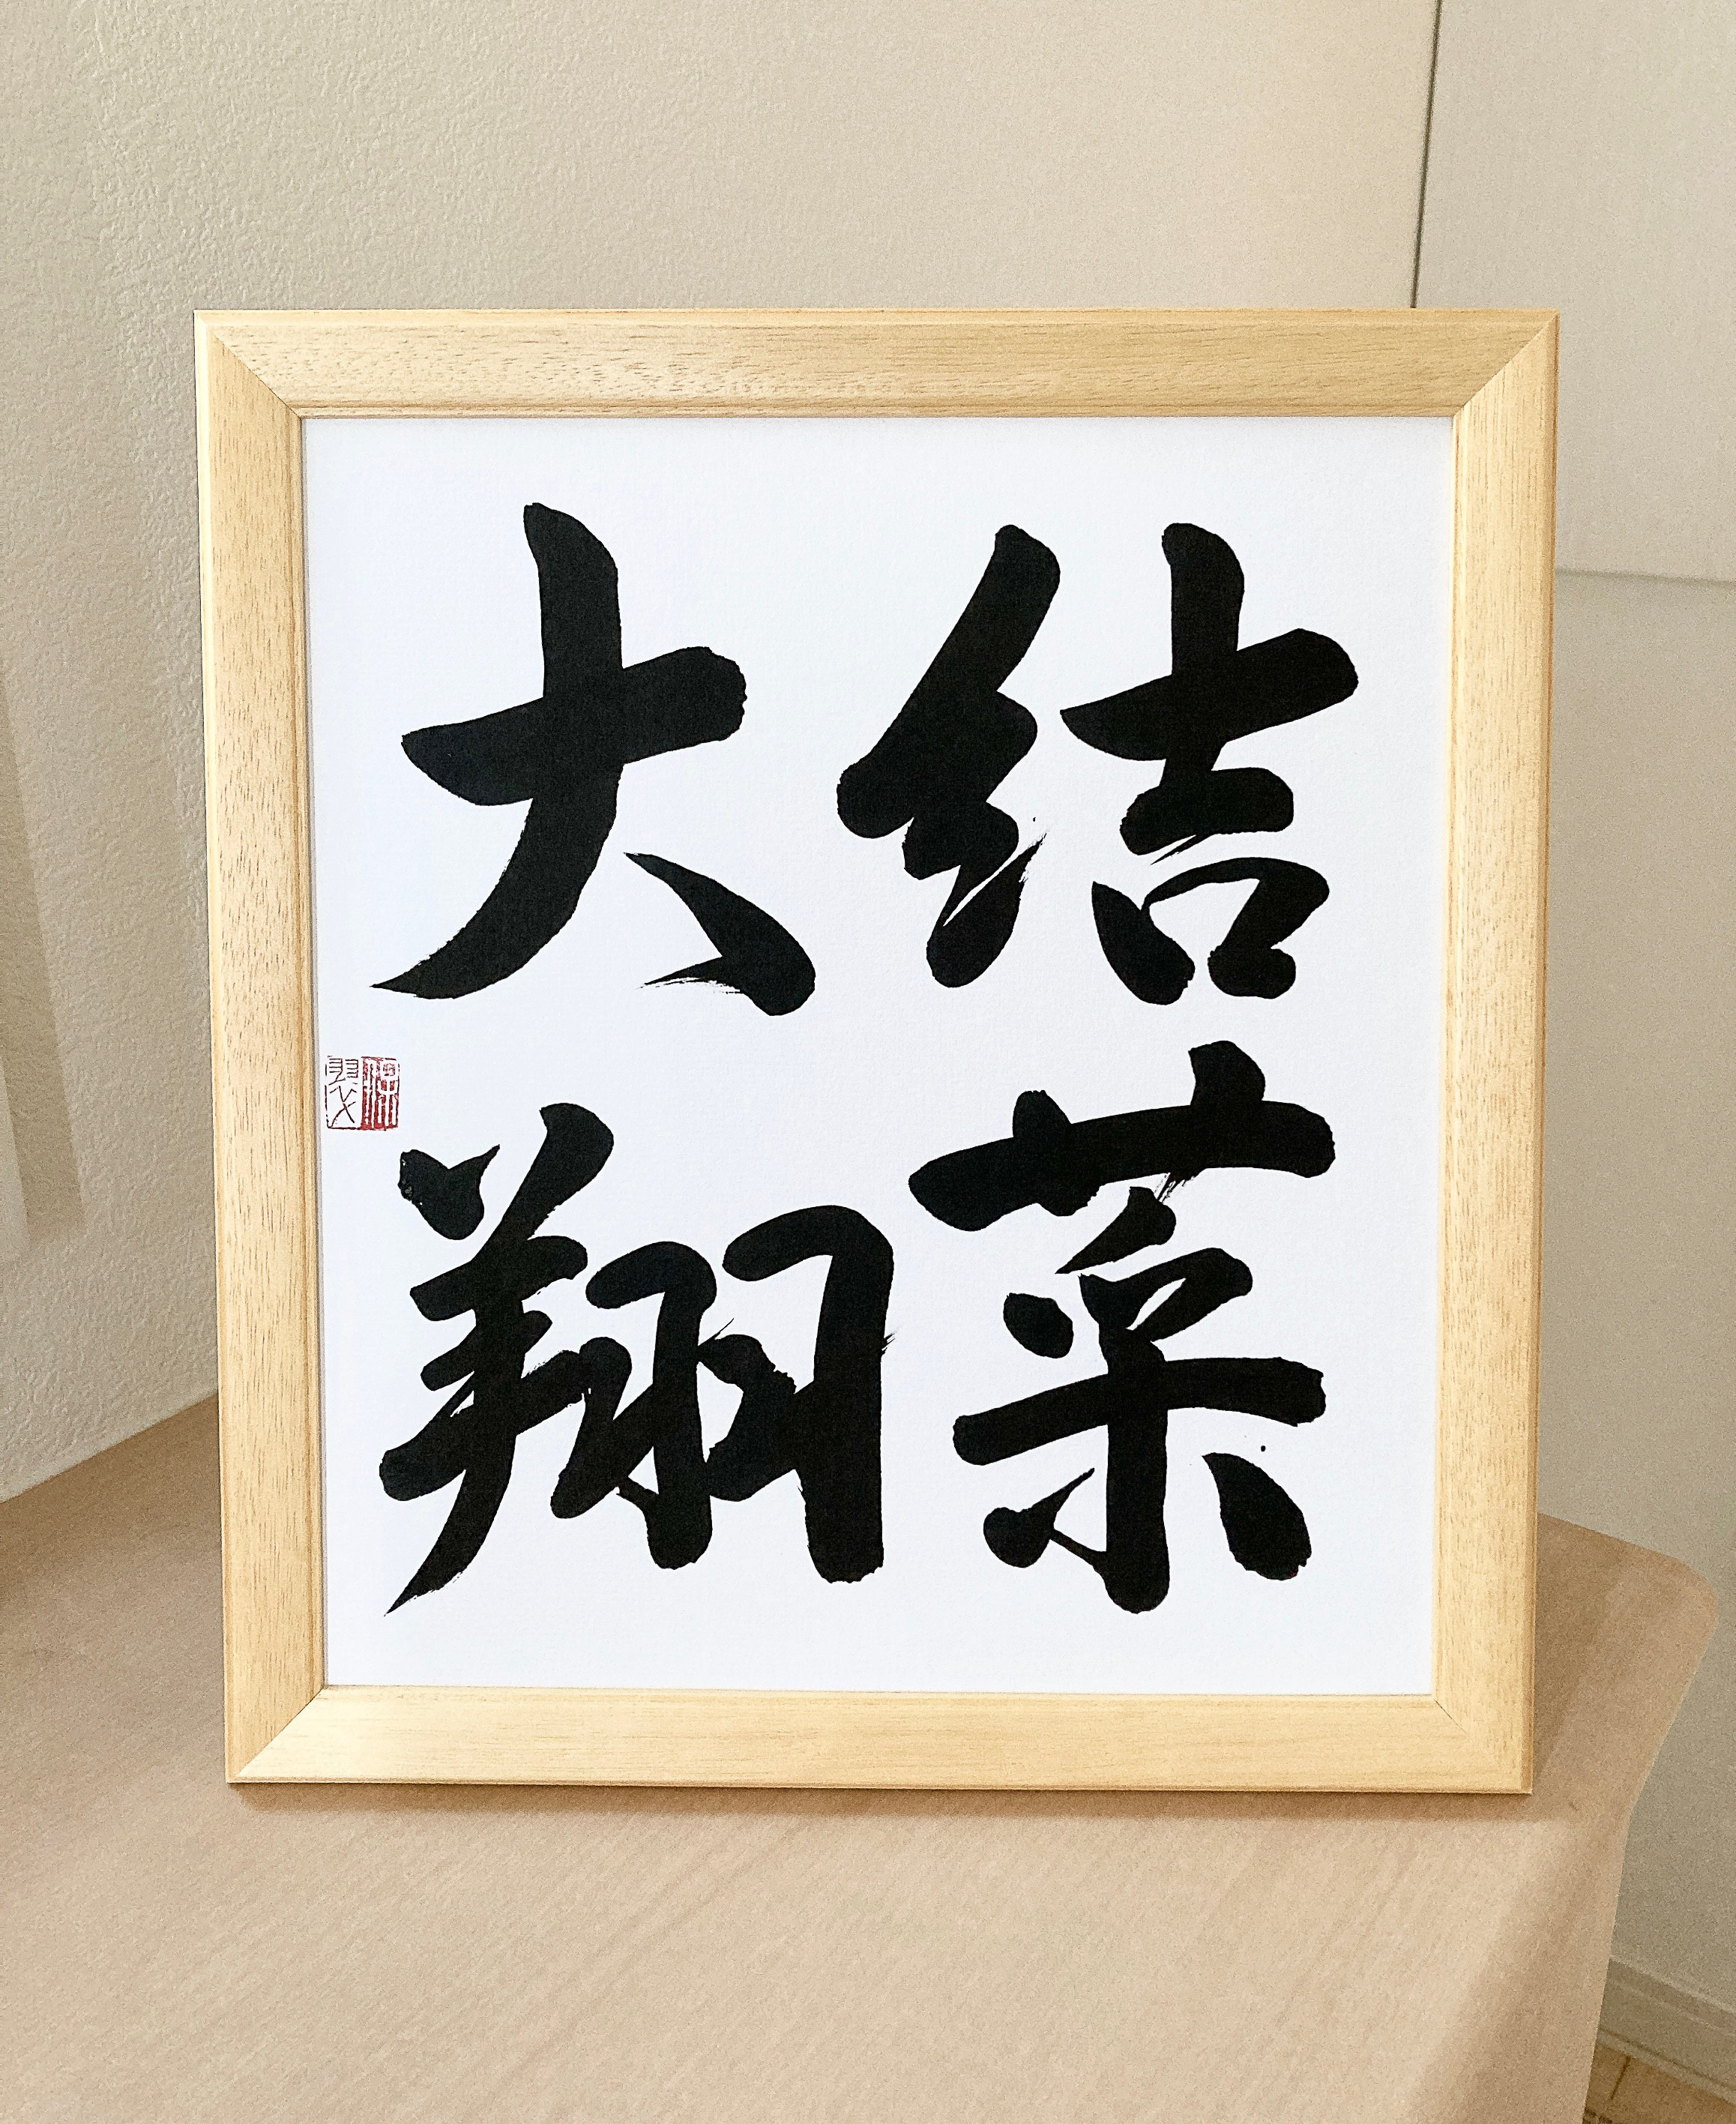 結菜
大翔